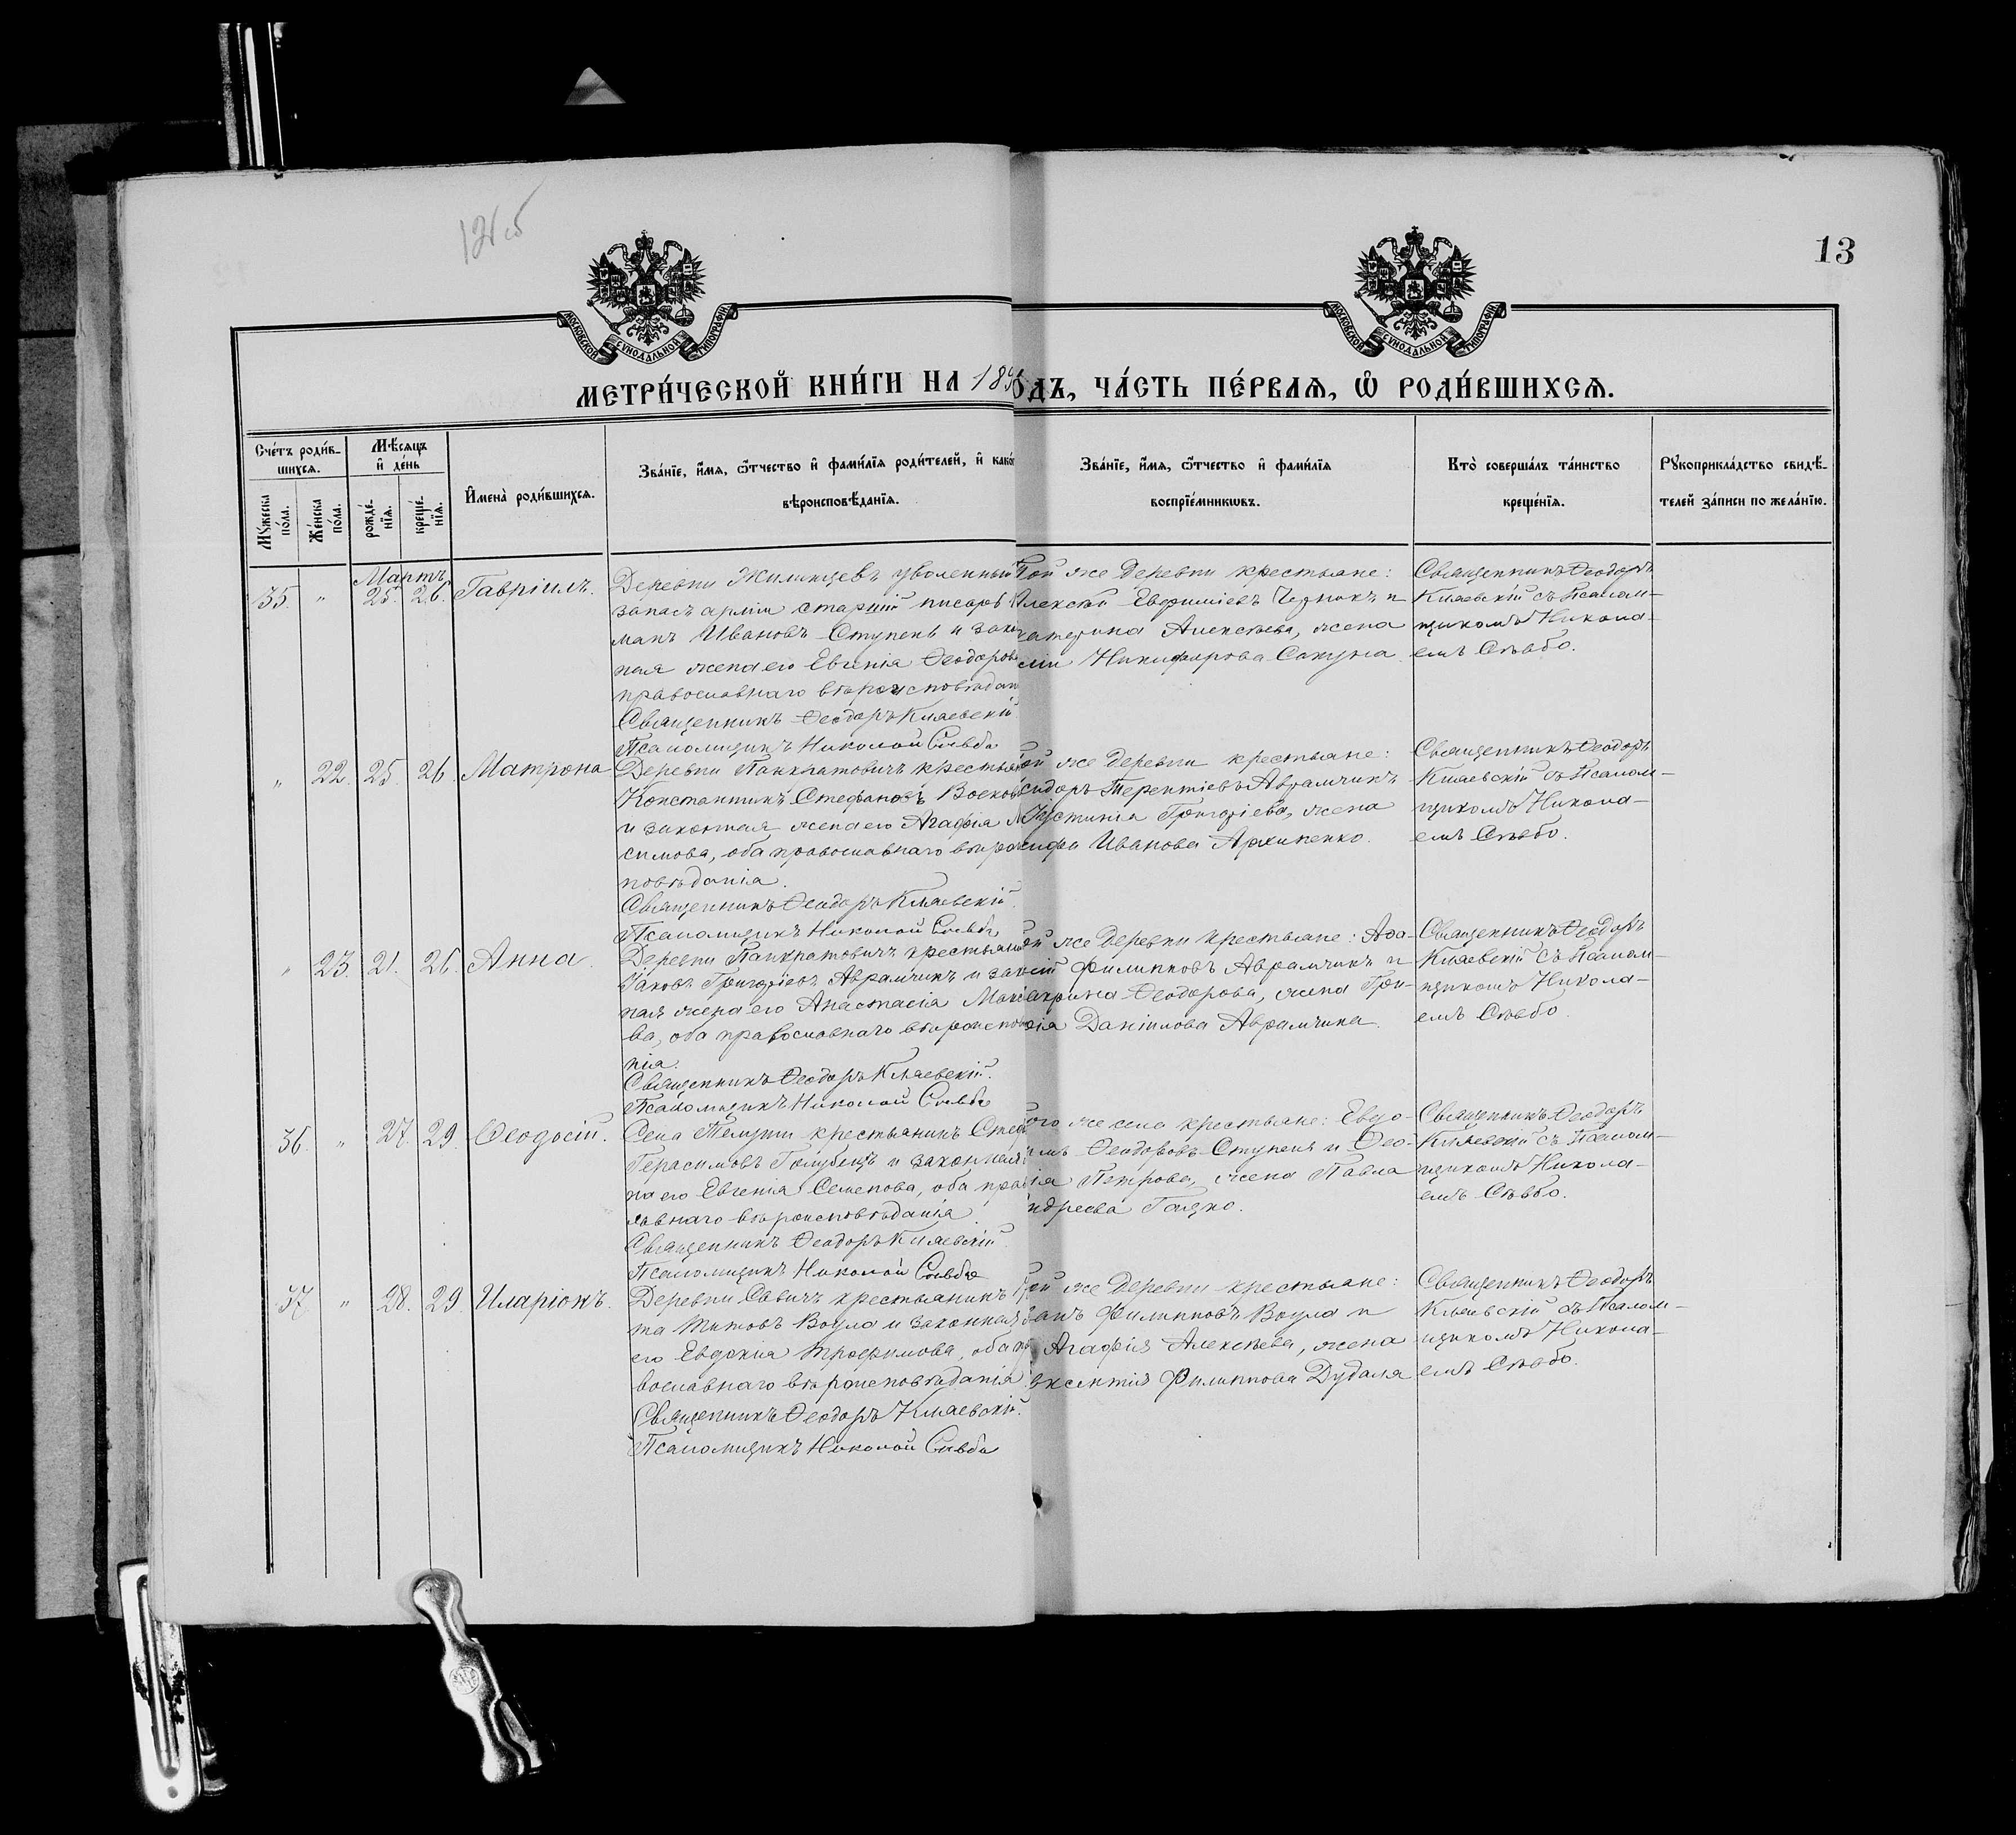 12об
13
МОСКОВСКОЙ СѴНОДАЛЬНОЙ ТИПОГРАФІИ
МОСКОВСКОЙ СѴНОДАЛЬНОЙ ТИПОГРАФІИ
МЕТРИ́ЧЕСКОЙ КНИ́ГИ НА 189
ОДЪ, ЧА́СТЬ ПЕ́РВАѦ, Ѡ РОДИ́ВШИХСѦ.
Сче́тъ роди́в-
шихсѧ.
Мꙋжеска по́ла.
Же́нска по́ла.
Мѣ́сѧцъ
и҆ де́нь
рожде́-
нїѧ.
креще́-
нїѧ.
И҆мена̀ роди́вшихсѧ.
Зва́нїе, и҆́мѧ, ѻ҆́тчество и҆ фами́лїѧ роди́телей, и҆ како́
вѣроисповѣ́данїѧ.
Зва́нїе, и҆́мѧ, ѻ҆́тчество и҆ фами́лїѧ
воспрїе́мникѡвъ.
Кто̀ соверша́лъ та́инство
креще́нїѧ.
Рꙋкоприкла́дство свидѣ́-
телей за́писи по жела́нїю.
Мартъ
35. " 25. 26. Гавріилъ.
Деревни Жилинцевъ уволенный
запасъ арміи старшій писарь
манъ Ивановъ Ступень и закон
ная жена его Евгенія Ѳеодоров
православнаго вѣроисповѣдан
Священникъ Ѳеодоръ Кляевскій
Псаломщикъ Николай Сѣвбо
Той же деревни крестьяне:
Алексѣй Евфиміевъ Чернюкъ и
катерина Алексѣева, жена
сіи Никифорова Сакуна
Священникъ Ѳеодоръ
Кляевскій съ Псалом-
щикомъ Никола-
емъ Сѣвбо.
" 22. 25. 26. Матрона
Деревни Панкратовичъ крестьян
Константинъ Стефановъ
и законная жена его Агафія М
симова, оба православнаго вѣро
повѣданія.
Священникъ Ѳеодоръ Кляевскій.
Псаломщикъ Николай Сѣвбо
ой же деревни крестьяне:
сидоръ Терентіевъ Аврамчикъ
Іустинія Григоріева, жена
сифа Иванова Архипенко.
Священникъ Ѳеодоръ
Кляевскій съ Псалом-
щикомъ Никола-
емъ Сѣвбо.
" 23. 21. 26. Анна.
Деревни Панкратовичъ крестьян
Іаковъ Григоріевъ Аврамчикъ и зак
ная жена его Анастасія Мак
ва, оба православнаго вѣроиспов
нія.
Священникъ Ѳеодоръ Кляевскій.
Псаломщикъ Николай Сѣвбо
ой же деревни крестьяне: Аѳа-
сій Филипповъ Аврамчикъ и
акрина Ѳеодорова, жена Гри-
рія Даніилова Аврамчика.
Священникъ Ѳеодоръ
Кляевскій съ Псалом-
щикомъ Никола-
емъ Сѣвбо.
36. " 27. 29. Ѳеодосій.
Села Телуши крестьянинъ Стеф
Герасимовъ Голубецъ и законная
на его Евгенія Семенова, оба прав
лавнаго вѣроисповѣданія.
Священникъ Ѳеодоръ Кляевскій
Псаломщикъ Николай Сѣвбо
ого же села крестьяне: Евдо-
имъ Ѳеодоровъ Ступень и Ѳео-
ія Петрова, жена Павла
ндреева Гацко.
Священникъ Ѳеодоръ
Кляевскій съ Псалом-
щикомъ Никола-
емъ Сѣвбо.
37. " 28. 29. Иларіонъ.
Деревни Савичъ крестьянинъ
та Титовъ Воула и законная
его Евдокія Трофимова, оба пр
вославнаго вѣроисповѣданія.
Священникъ Ѳеодоръ Кляевскій.
Псаломщикъ Николай Сѣвбо
ой же деревни крестьяне:
ванъ Филипповъ Воула и
Агафія Алексѣева, жена
вксентія Филиппова Дудаля
Священникъ Ѳеодоръ
Кляевскій съ Псалом-
щикомъ Никола-
емъ Сѣвбо.